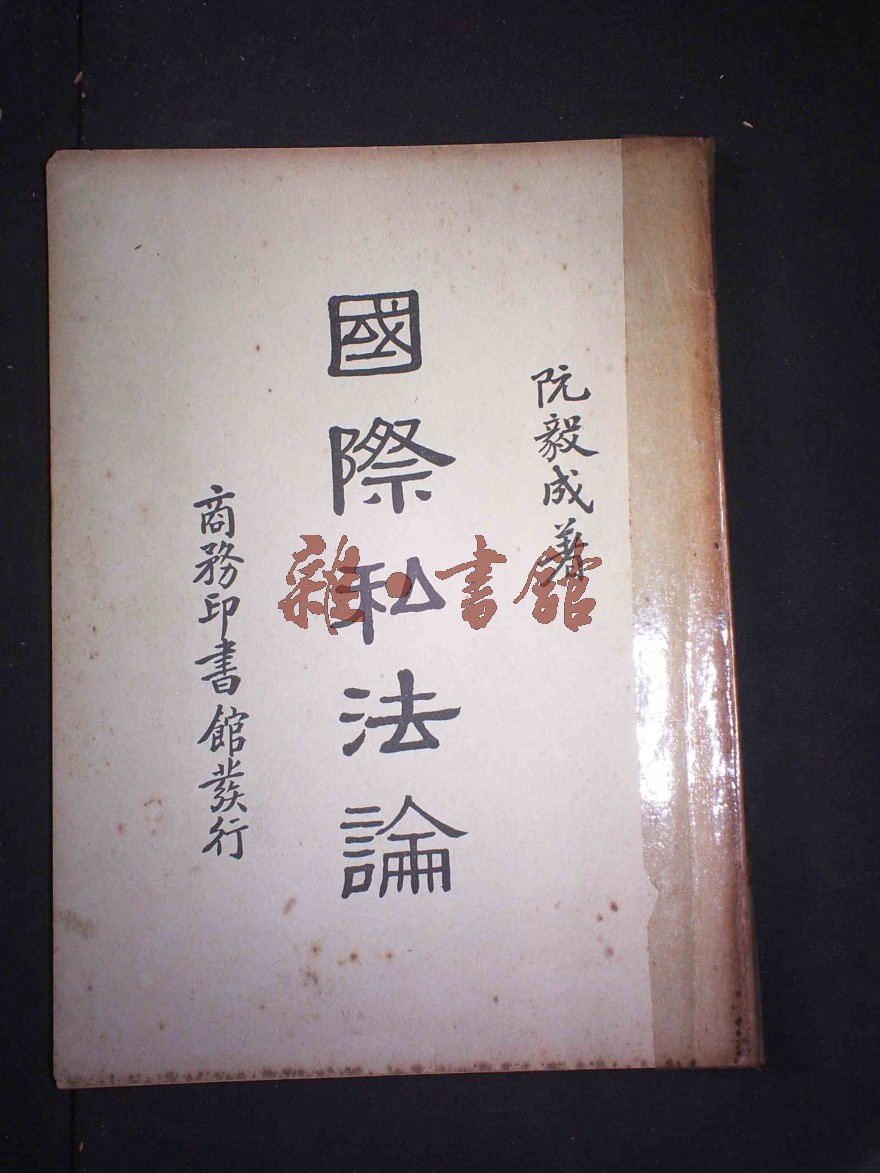 阮毅成著
國際私法論
商務印書館發行
雜·書館